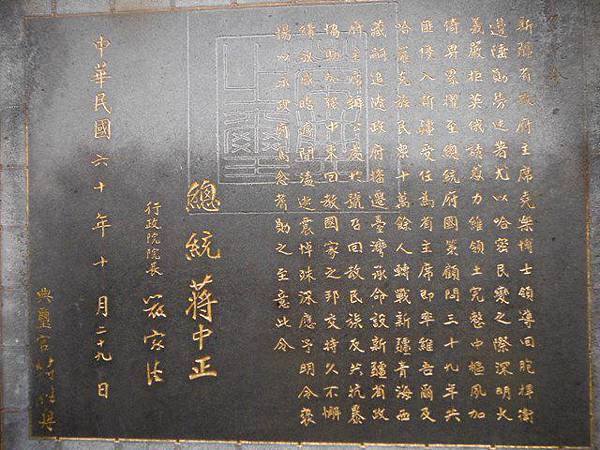 新疆省政府主席堯樂博士領導回胞捍衛
邊陲勳勞迭著尤以哈密民變之際深明大
義嚴拒英俄誘惑力維領土完整中樞夙加
倚畀累擢至總統府國策顧問三十九年共
匪侵入新疆受任為省主席即率維吾爾及
哈薩克族民眾十萬餘人轉戰新疆青海西
藏嗣追隨政府播遷臺灣承命設新疆省政
府主席辦公處於號召回教民族反共抗暴
協助加強中東回教國家之邦交持久不懈
績效遽聞溘逝震悼殊深應予明令褒
揚以示政府篤念耆勳之至意此令
總統 蔣中正
行政院院長 嚴家淦
中華民國六十年十月二十九日
典璽官